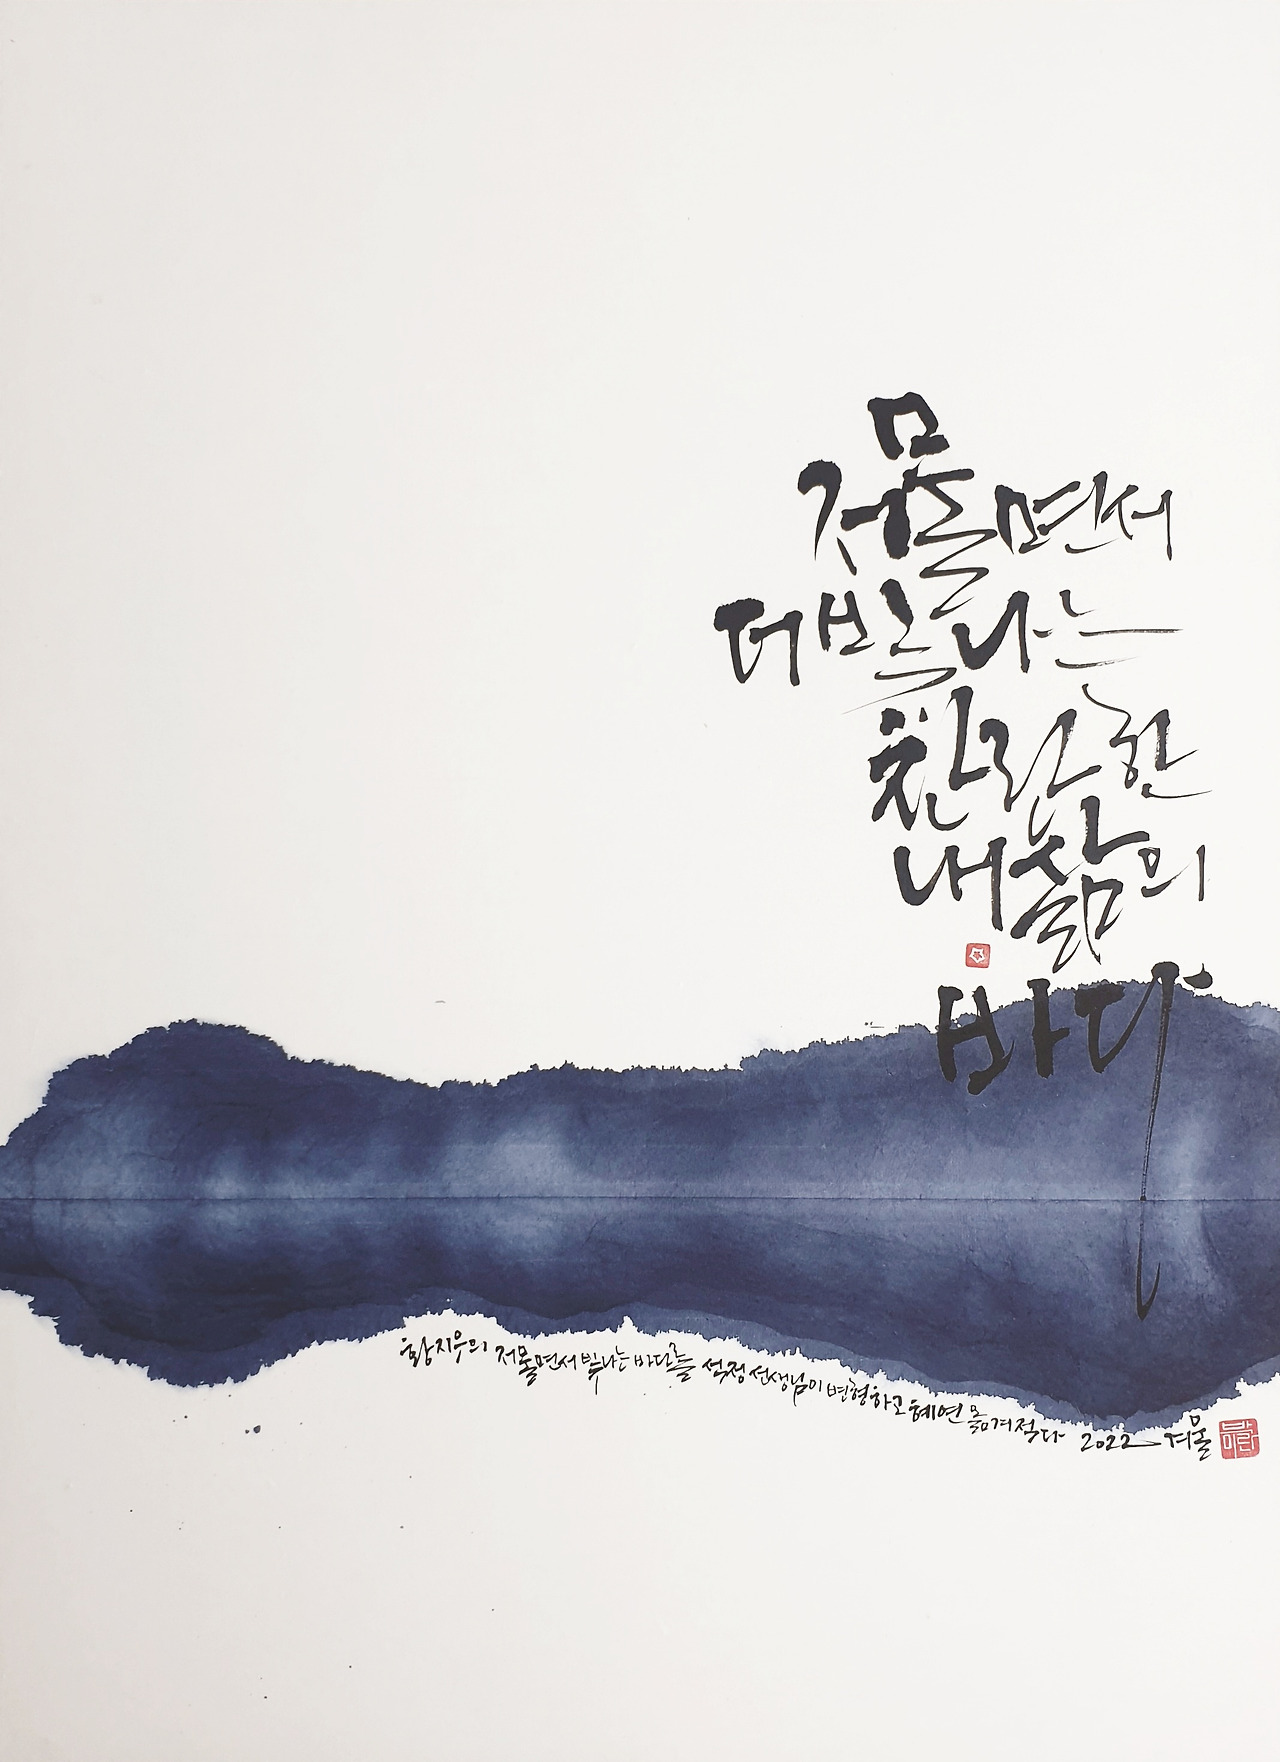 저물면서
더 빛나는
찬란한
내 삶의
바다
황지우의 저물면서 빛나는 바다를 석정 선생님이 변형하고 혜연 옮겨적다 2022 겨울